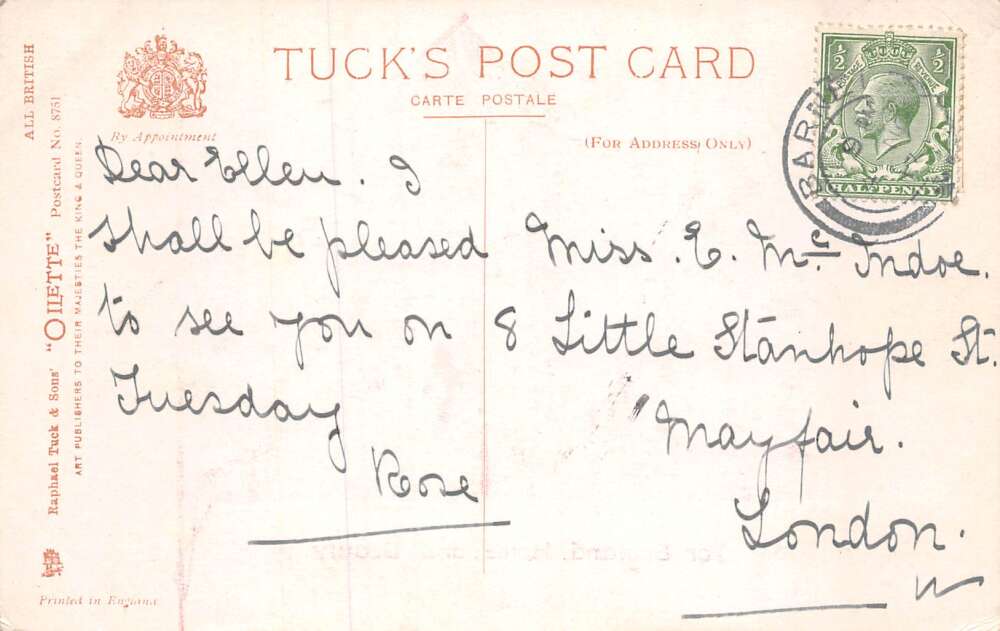 TUCK'S POST CARD
CARTE POSTALE
(FOR ADDRESS ONLY)
By Appointment
ALL BRITISH
Raphael Tuck & Sons' "OILETTE" Postcard No. 8751
ART PUBLISHERS TO THEIR MAJESTIES THE KING & QUEEN.
Printed in England
½ ½
POSTAGE REVENUE
HALFPENNY
Dear Ellen. I
shall be pleased
to see you on
Tuesday
Rose
Miss. E. Mc Indoe.
8 Little Stanhope St.
Mayfair.
London.
W